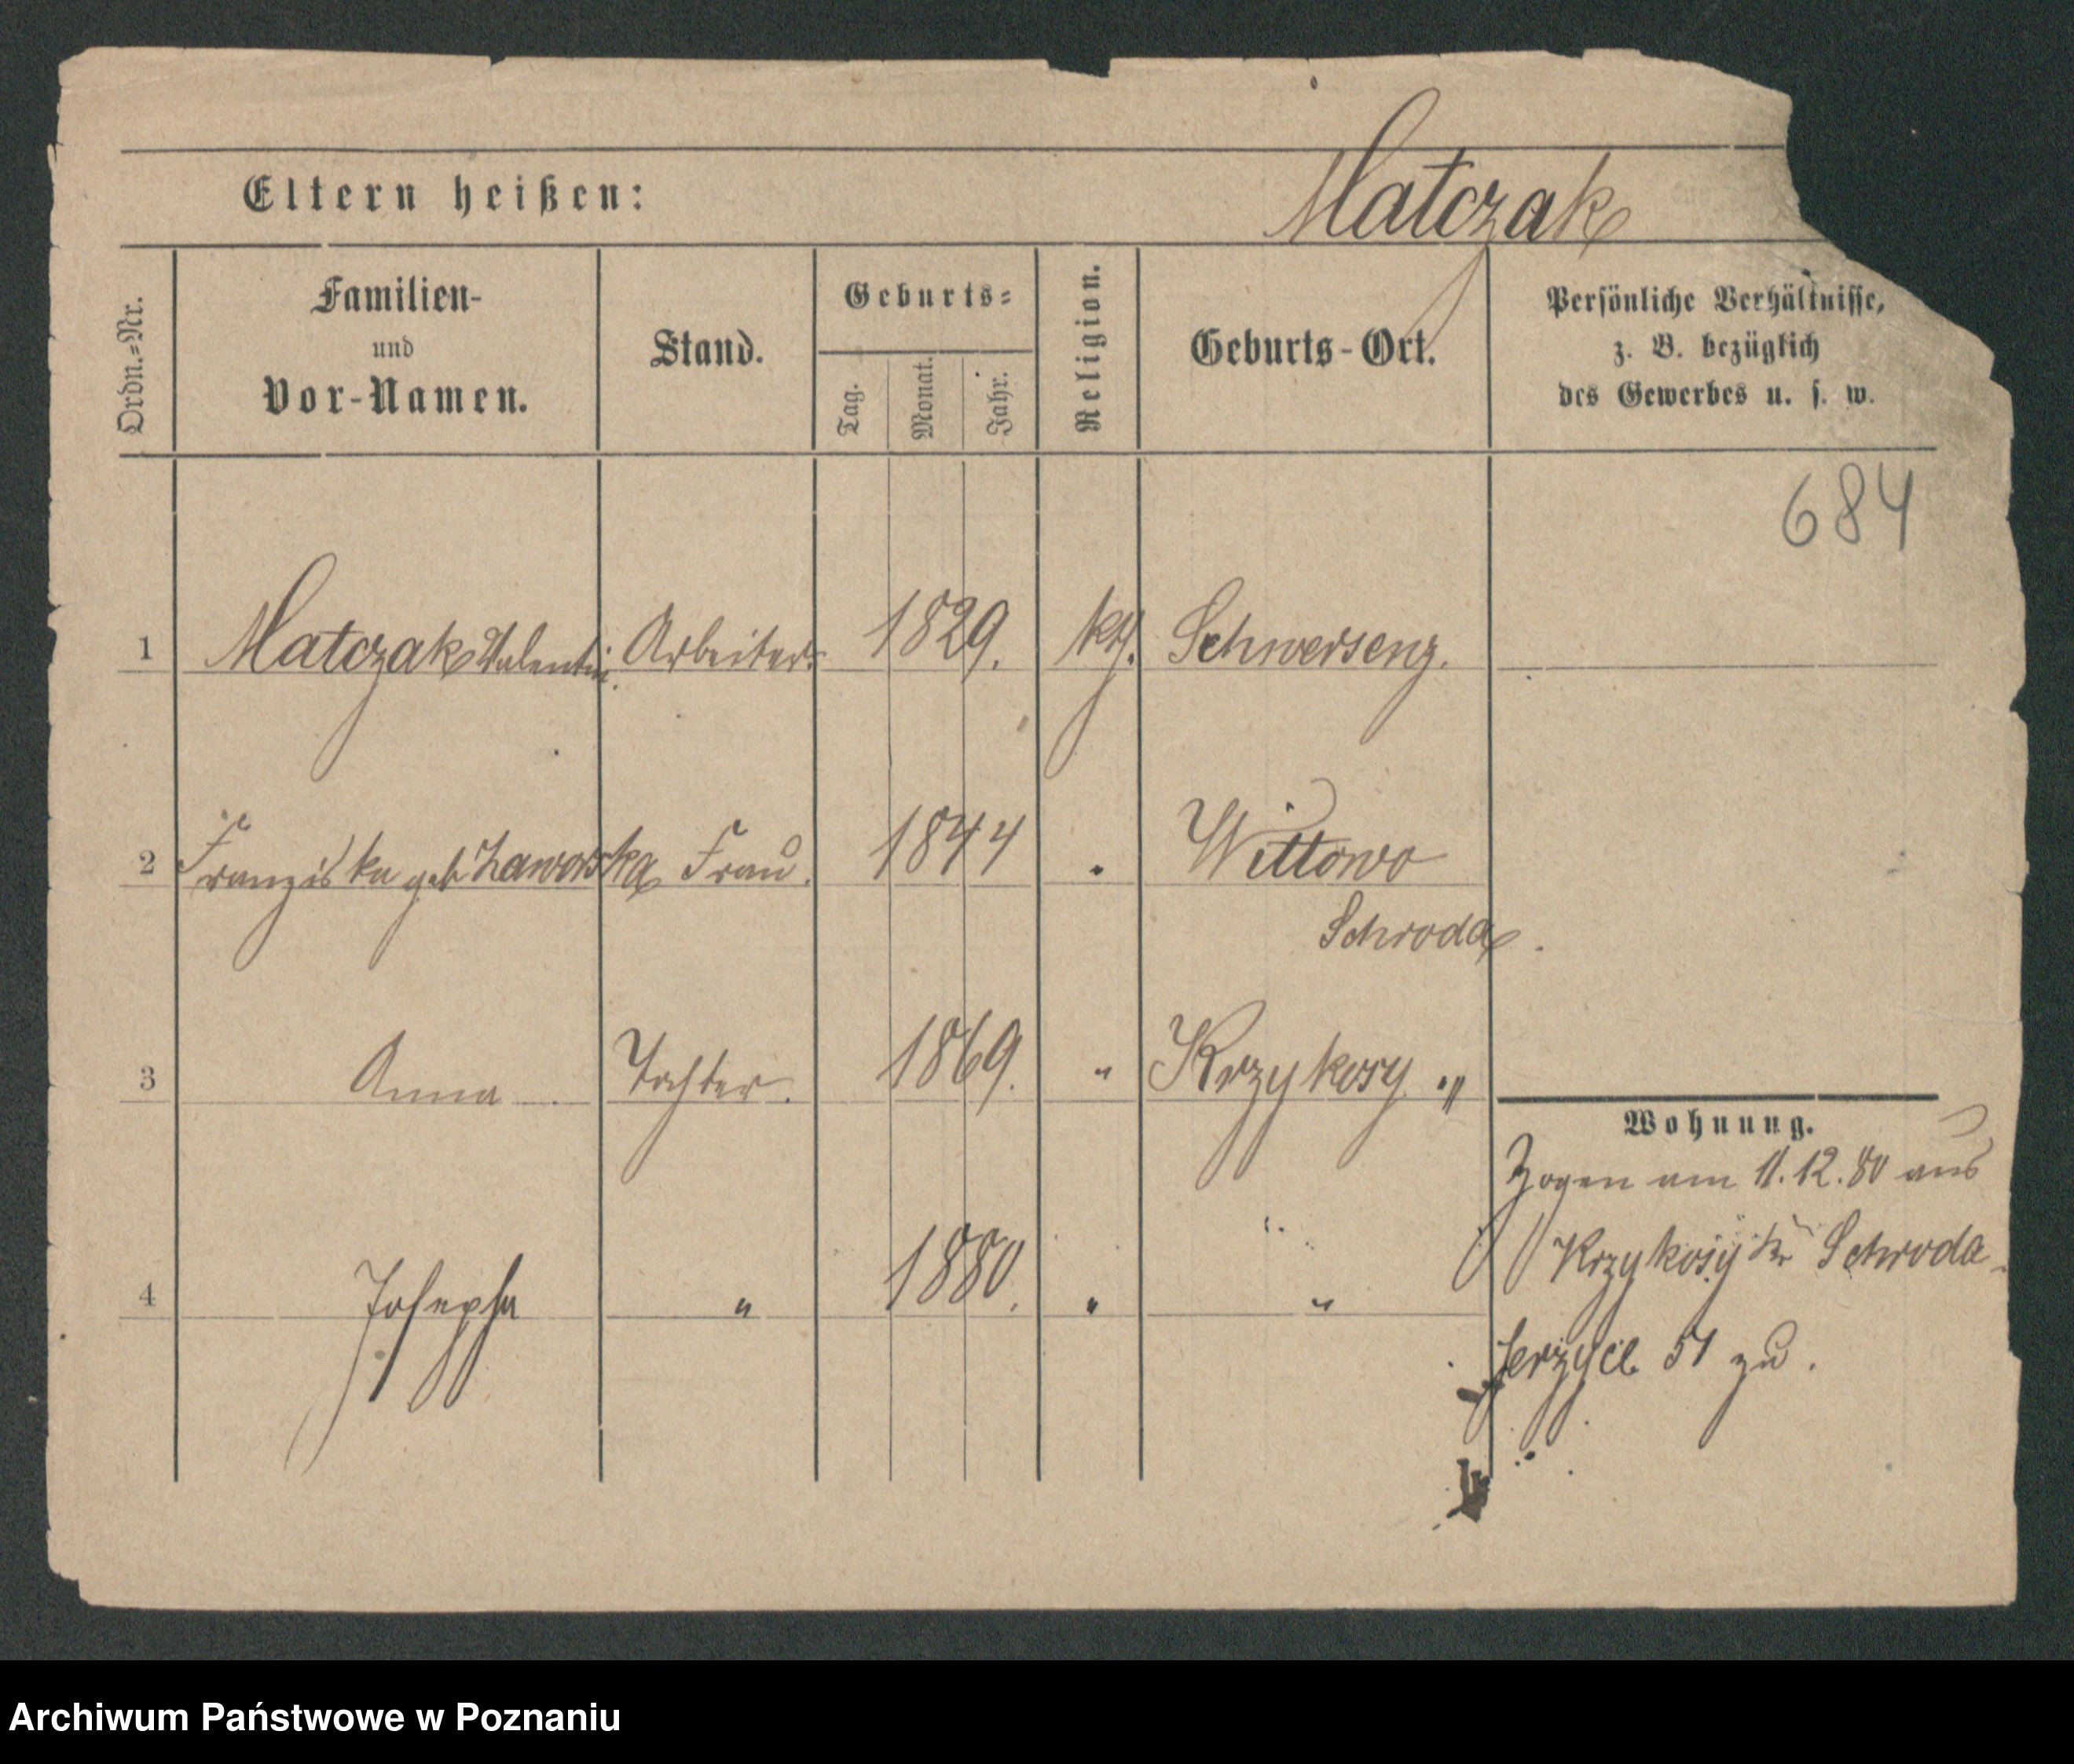 Matczak
Eltern heißen:
Ordn.=Nr.
Familien-
und
Vor-Namen.
Stand.
Geburts=
Tag.
Monat.
Jahr.
Religion.
Geburts-Ort.
Persönliche Verhältnisse,
z. B. bezüglich
des Gewerbes u. s. w.
684
1 Matczak Valentin. Arbeiter. 1829. kth. Schwersenz.
2 Franziska geb Zaworska Frau. 1844 " Wittowo
Schroda.
3 Anna Tochter. 1869. " Krzykosy "
4 Josepha " 1880. " "
Wohnung.
Zogen am 11.12.80 aus
Krzykosy Kr Schroda
Jerzyce 51 zu.
Archiwum Państwowe w Poznaniu